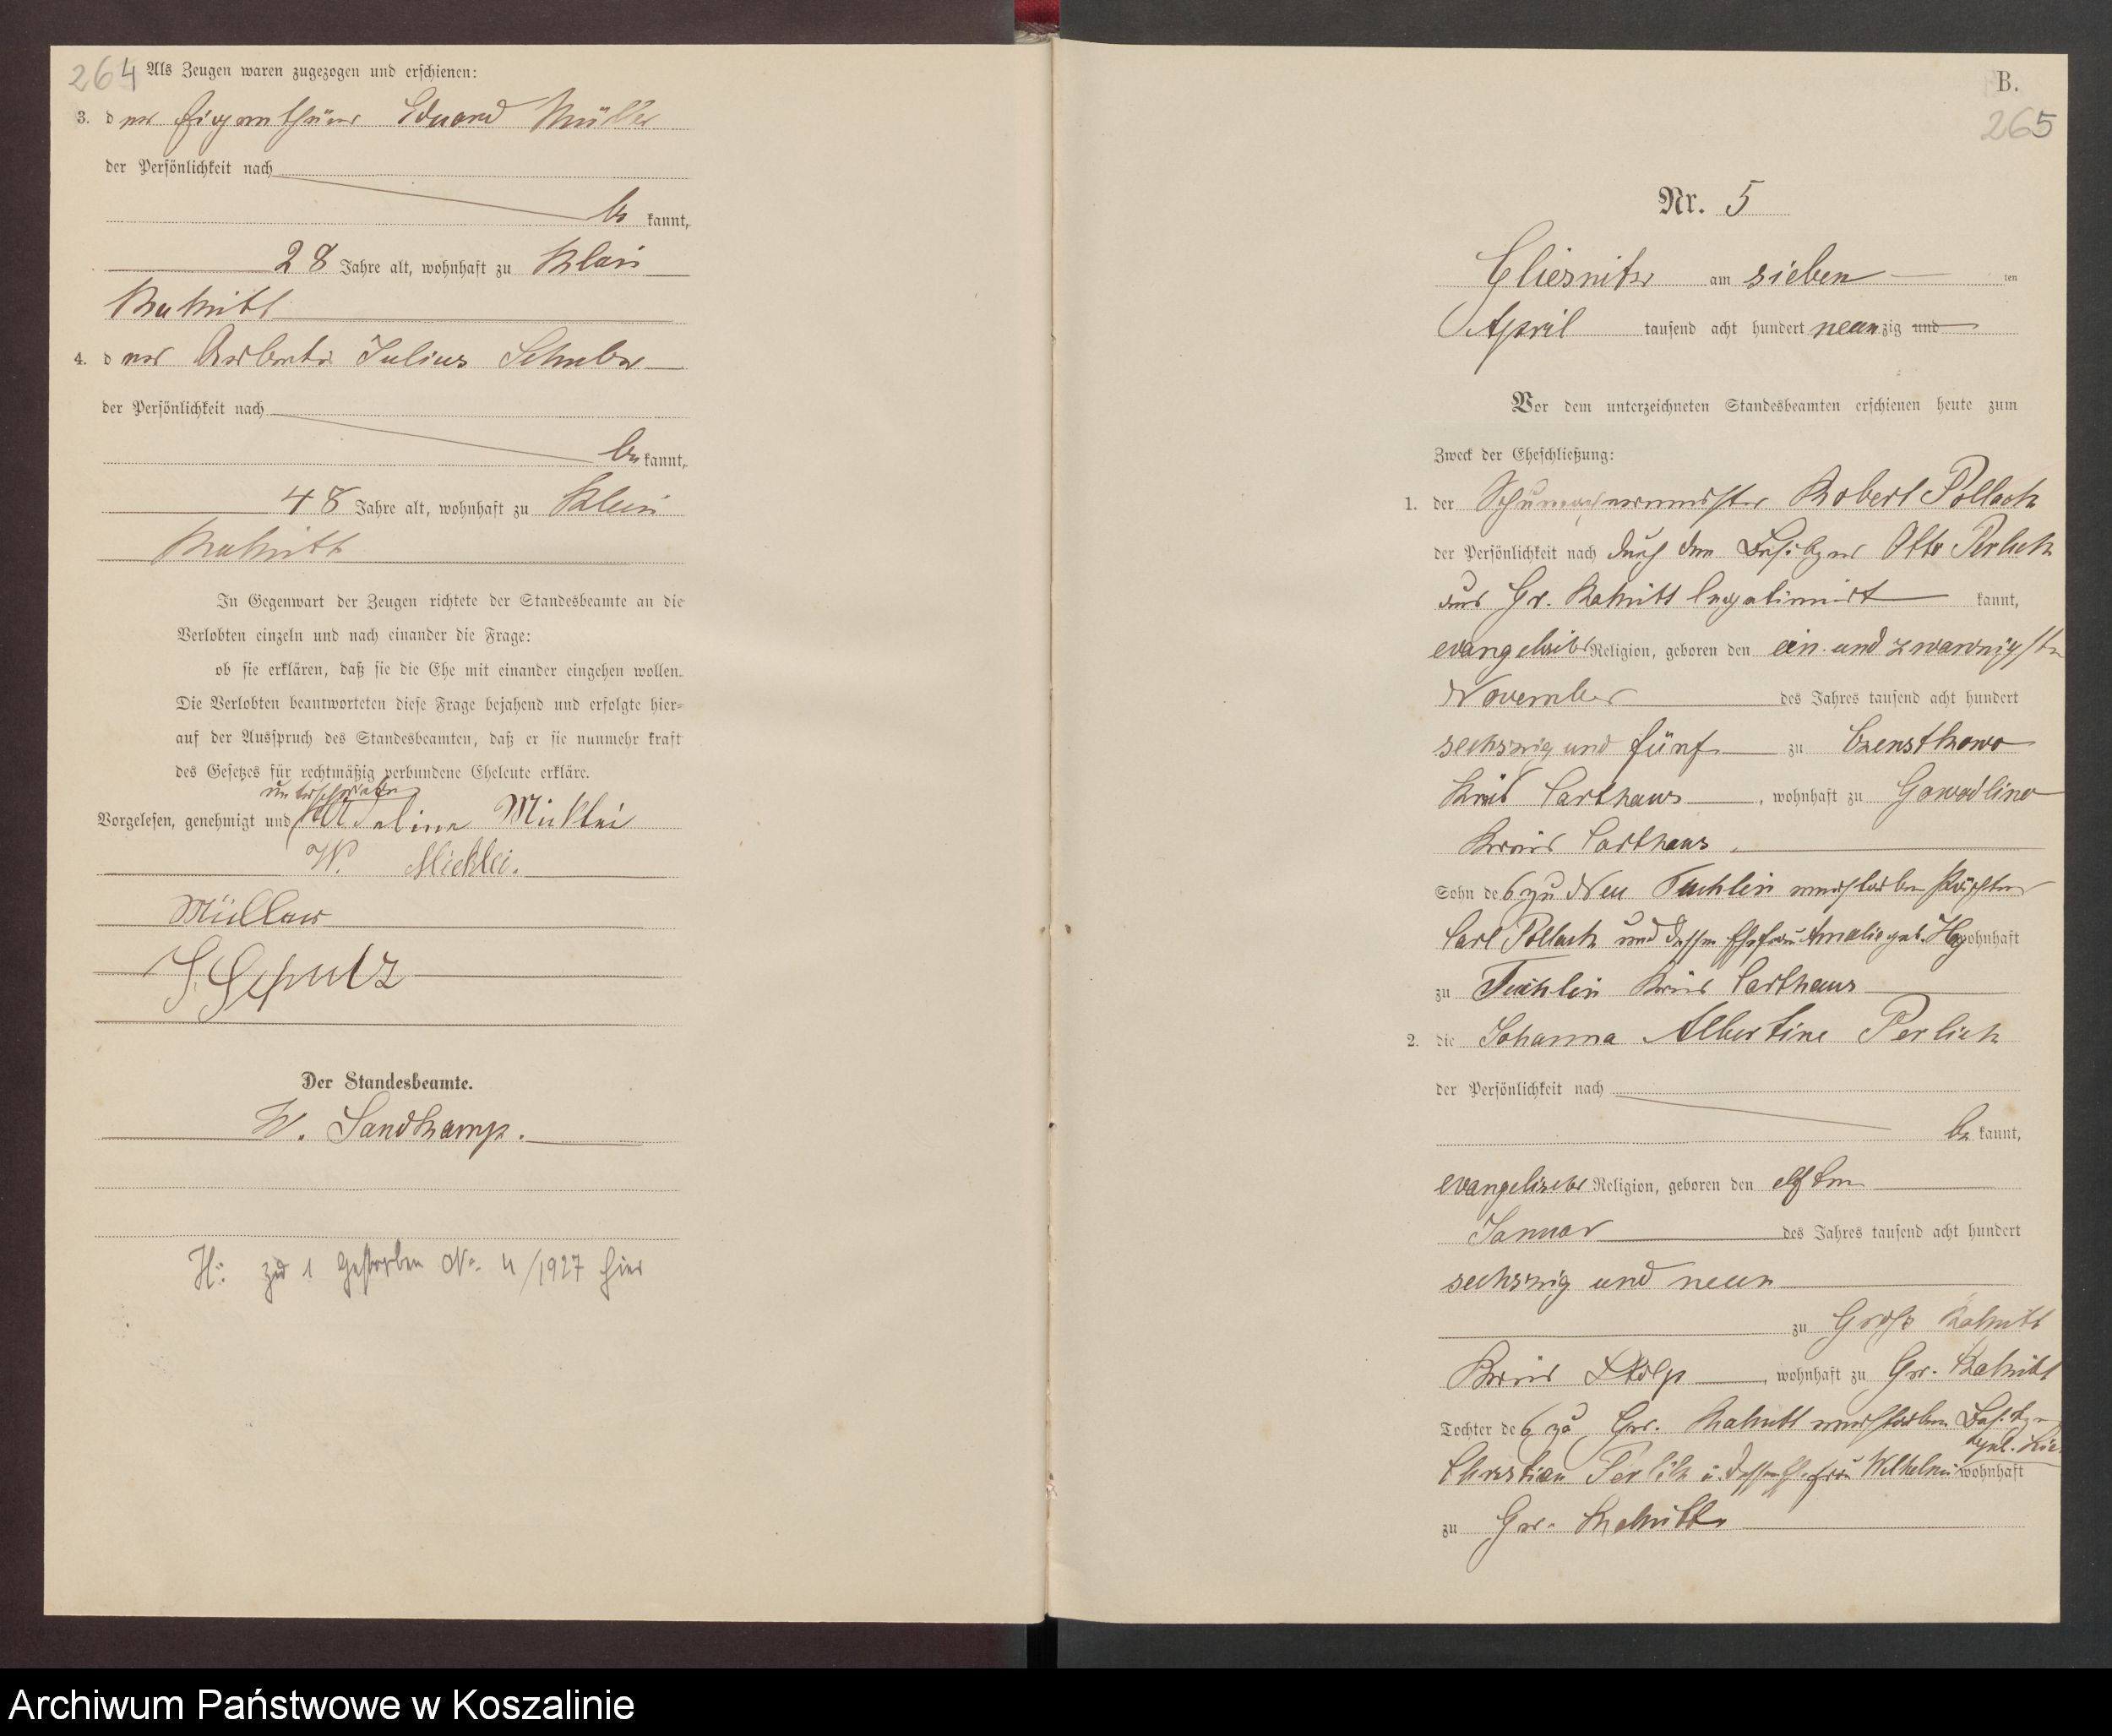 264 Als Zeugen waren zugezogen und erschienen:
3. der Eigenthümer Eduard Müller
der Persönlichkeit nach
be kannt,
28 Jahre alt, wohnhaft zu Klein
Rakitt
4. der Arbeiter Julius Schulz
der Persönlichkeit nach
be kannt,
48 Jahre alt, wohnhaft zu Klein
Rakitt
In Gegenwart der Zeugen richtete der Standesbeamte an die
Verlobten einzeln und nach einander die Frage:
ob sie erklären, daß sie die Ehe mit einander eingehen wollen.
Die Verlobten beantworteten diese Frage bejahend und erfolgte hier=
auf der Ausspruch des Standesbeamten, daß er sie nunmehr kraft
des Gesetzes für rechtmäßig verbundene Eheleute erkläre.
unterschrieben
Vorgelesen, genehmigt und
W.
Müller
J. Schulz
Der Standesbeamte.
W. Sandkamp.
H: zu 1 gestorben No. 4/1927 hier
B.
265
Nr. 5
Gliesnitz am sieben ten
April tausend acht hundert neun zig und
Vor dem unterzeichneten Standesbeamten erschienen heute zum
Zweck der Eheschließung:
1. der Schumachermeister Robert Pollack
der Persönlichkeit nach durch den Besitzer Otto Perlick
aus Gr. Rakitt legatimirt kannt,
evangelischer Religion, geboren den ein und zwanzigsten
November des Jahres tausend acht hundert
sechszig und fünf zu Czenstkowo
Kreis Carthaus, wohnhaft zu Gowodlino
Kreis Carthaus
Sohn des zu Neu Tuchlin verstorbenen
Carl Pollack und dessen Ehefrau Amalie geb. wohnhaft
zu Tuchlin Kreis Carthaus
2. die Johanna Albertine Perlick
der Persönlichkeit nach
be kannt,
evangelischer Religion, geboren den elften
Januar des Jahres tausend acht hundert
sechszig und neun
zu Groß Rakitt
Kreis Stolp, wohnhaft zu Gr. Rakitt
Tochter des zu Gr. Rakitt verstorbenen Besitzer
Christian Perlick u. dessen Ehefrau Wilhelmine wohnhaft
zu Gr. Rakitt
Archiwum Państwowe w Koszalinie